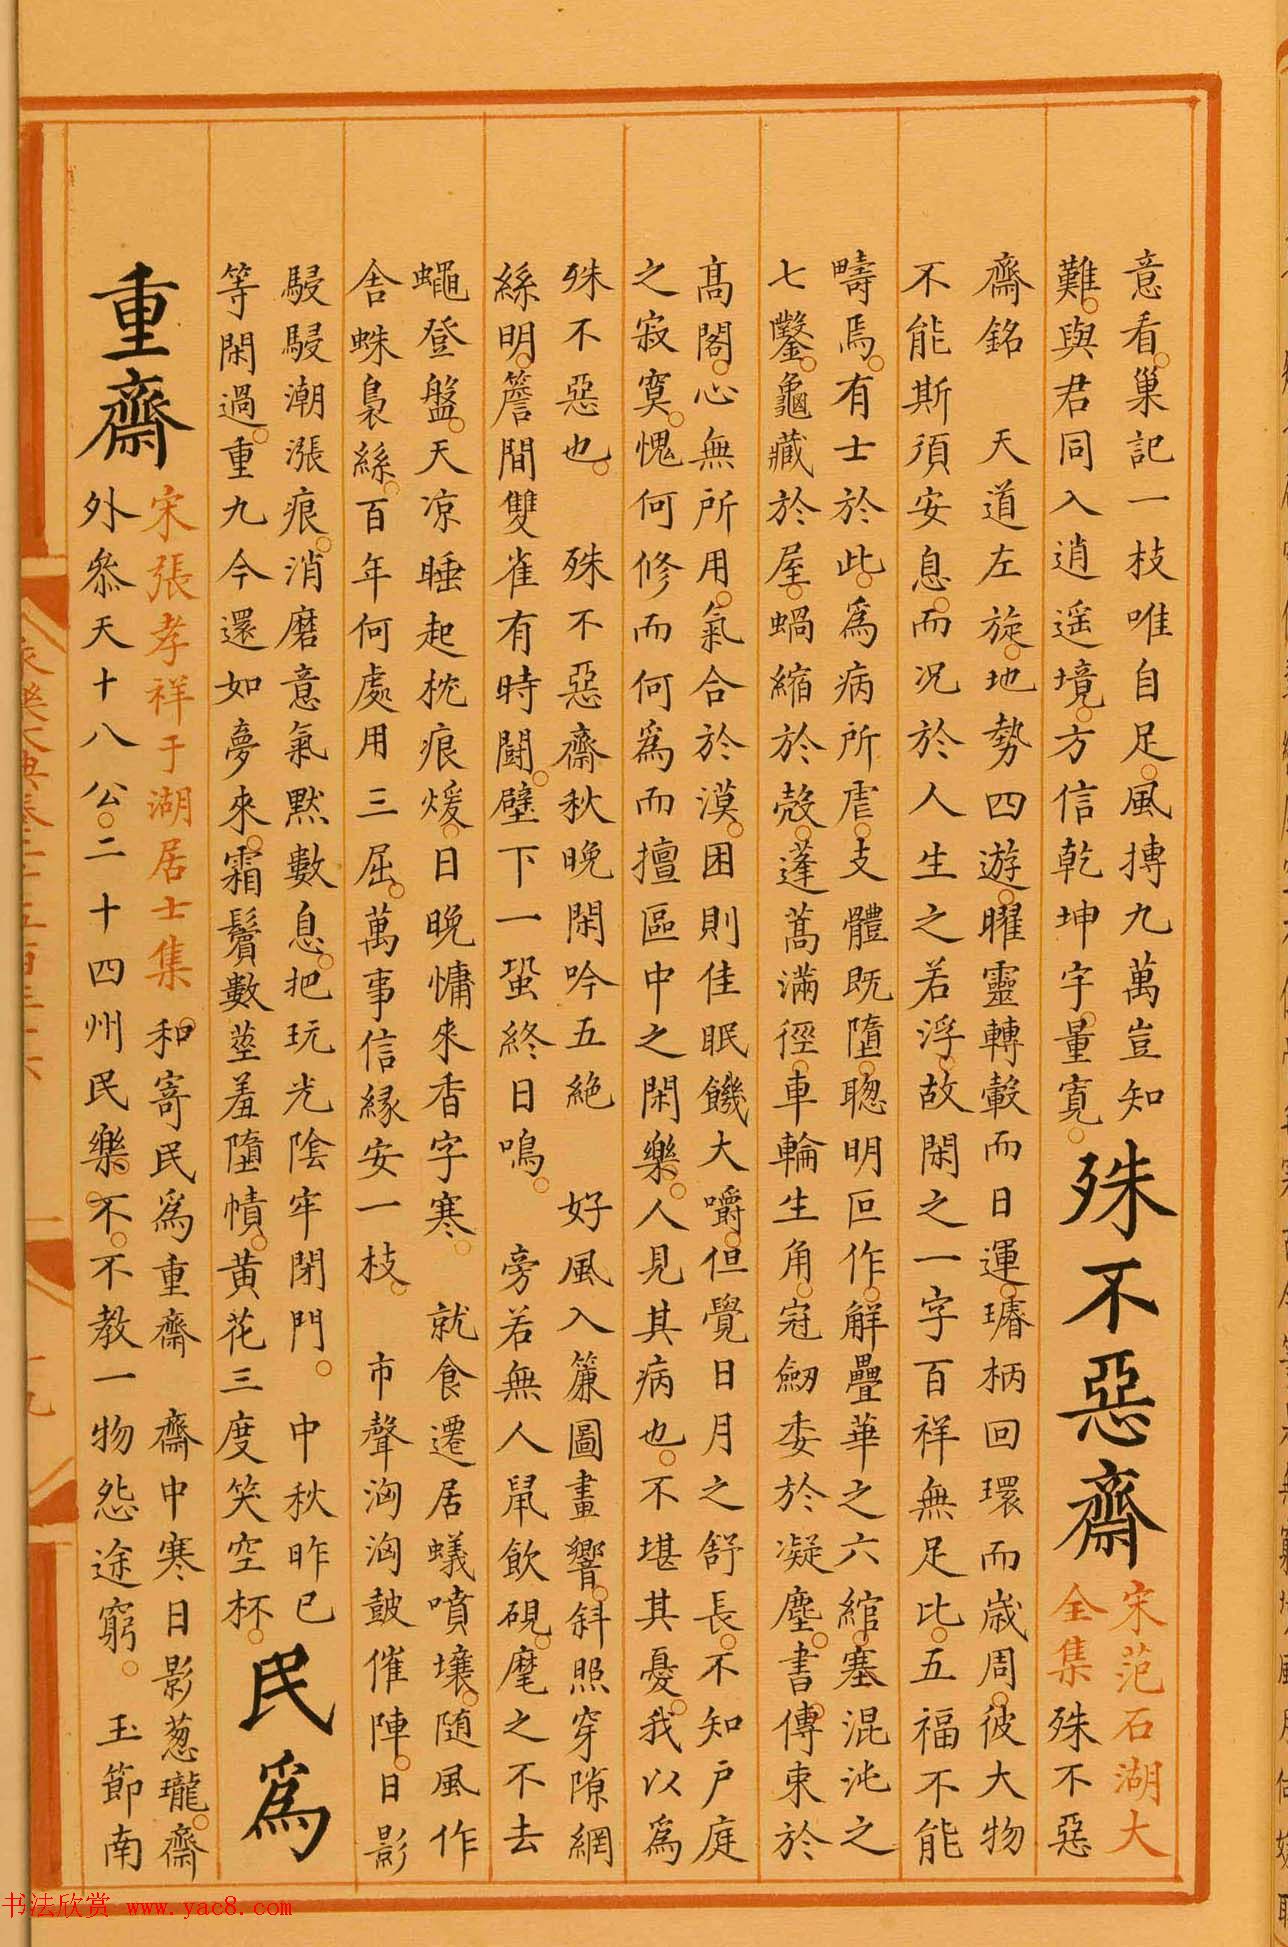 意看巢記一枝唯自足風摶九萬豈知
難與君同入逍遥境方信乾坤字量寛
殊不惡齋
宋范石湖大
全集
殊不惡
齋銘　天道左旋地勢四遊曜靈轉轂而日運璿柄回環而歳周彼大物
不能斯須安息而况於人生之若浮故閑之一字百祥無足比五福不能
疇焉有士於此爲病所虐支體既隳聰明叵作解疊華之六綰塞混沌之
七鑿龜藏於屋蝸縮於殻蓬蒿滿徑車輪生角冠劒委於凝塵書傳束於
髙閣心無所用氣合於漠困則佳眠饑大嚼但覺日月之舒長不知户庭
之寂寞愧何修而何爲而擅區中之閑樂人見其病也不堪其憂我以爲
殊不惡也　殊不惡齋秋晚閑吟五絶　好風入簾圖畫響斜照穿隙網
絲明簷間雙雀有時鬭壁下一蛩終日鳴　旁若無人鼠飲硯麾之不去
蠅登盤天凉睡起枕痕煖日晚慵來香字寒　就食遷居蟻噴壤随風作
舎蛛裊絲百年何處用三屈萬事信縁安一枝　市聲洶洶鼓催陣日影
駸駸潮漲痕消磨意氣默數息把玩光陰牢閉門　中秋昨已
等閑過重九今還如夢來霜鬢數莖羞墮幘黄花三度笑空杯
民爲
重齋
宋張孝祥于湖居士集
和寄民爲重齋　齋中寒日影葱瓏齋
外叅天十八公二十四州民樂不不教一物怨途窮　玉節南
永樂大典卷二千五百三十六
十九
书法欣赏 www.yac8.com